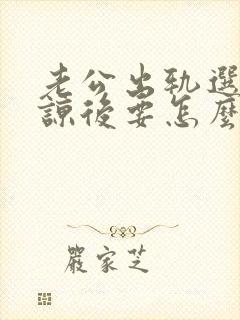 老公出軌選
諒後要怎麼
嚴家芝